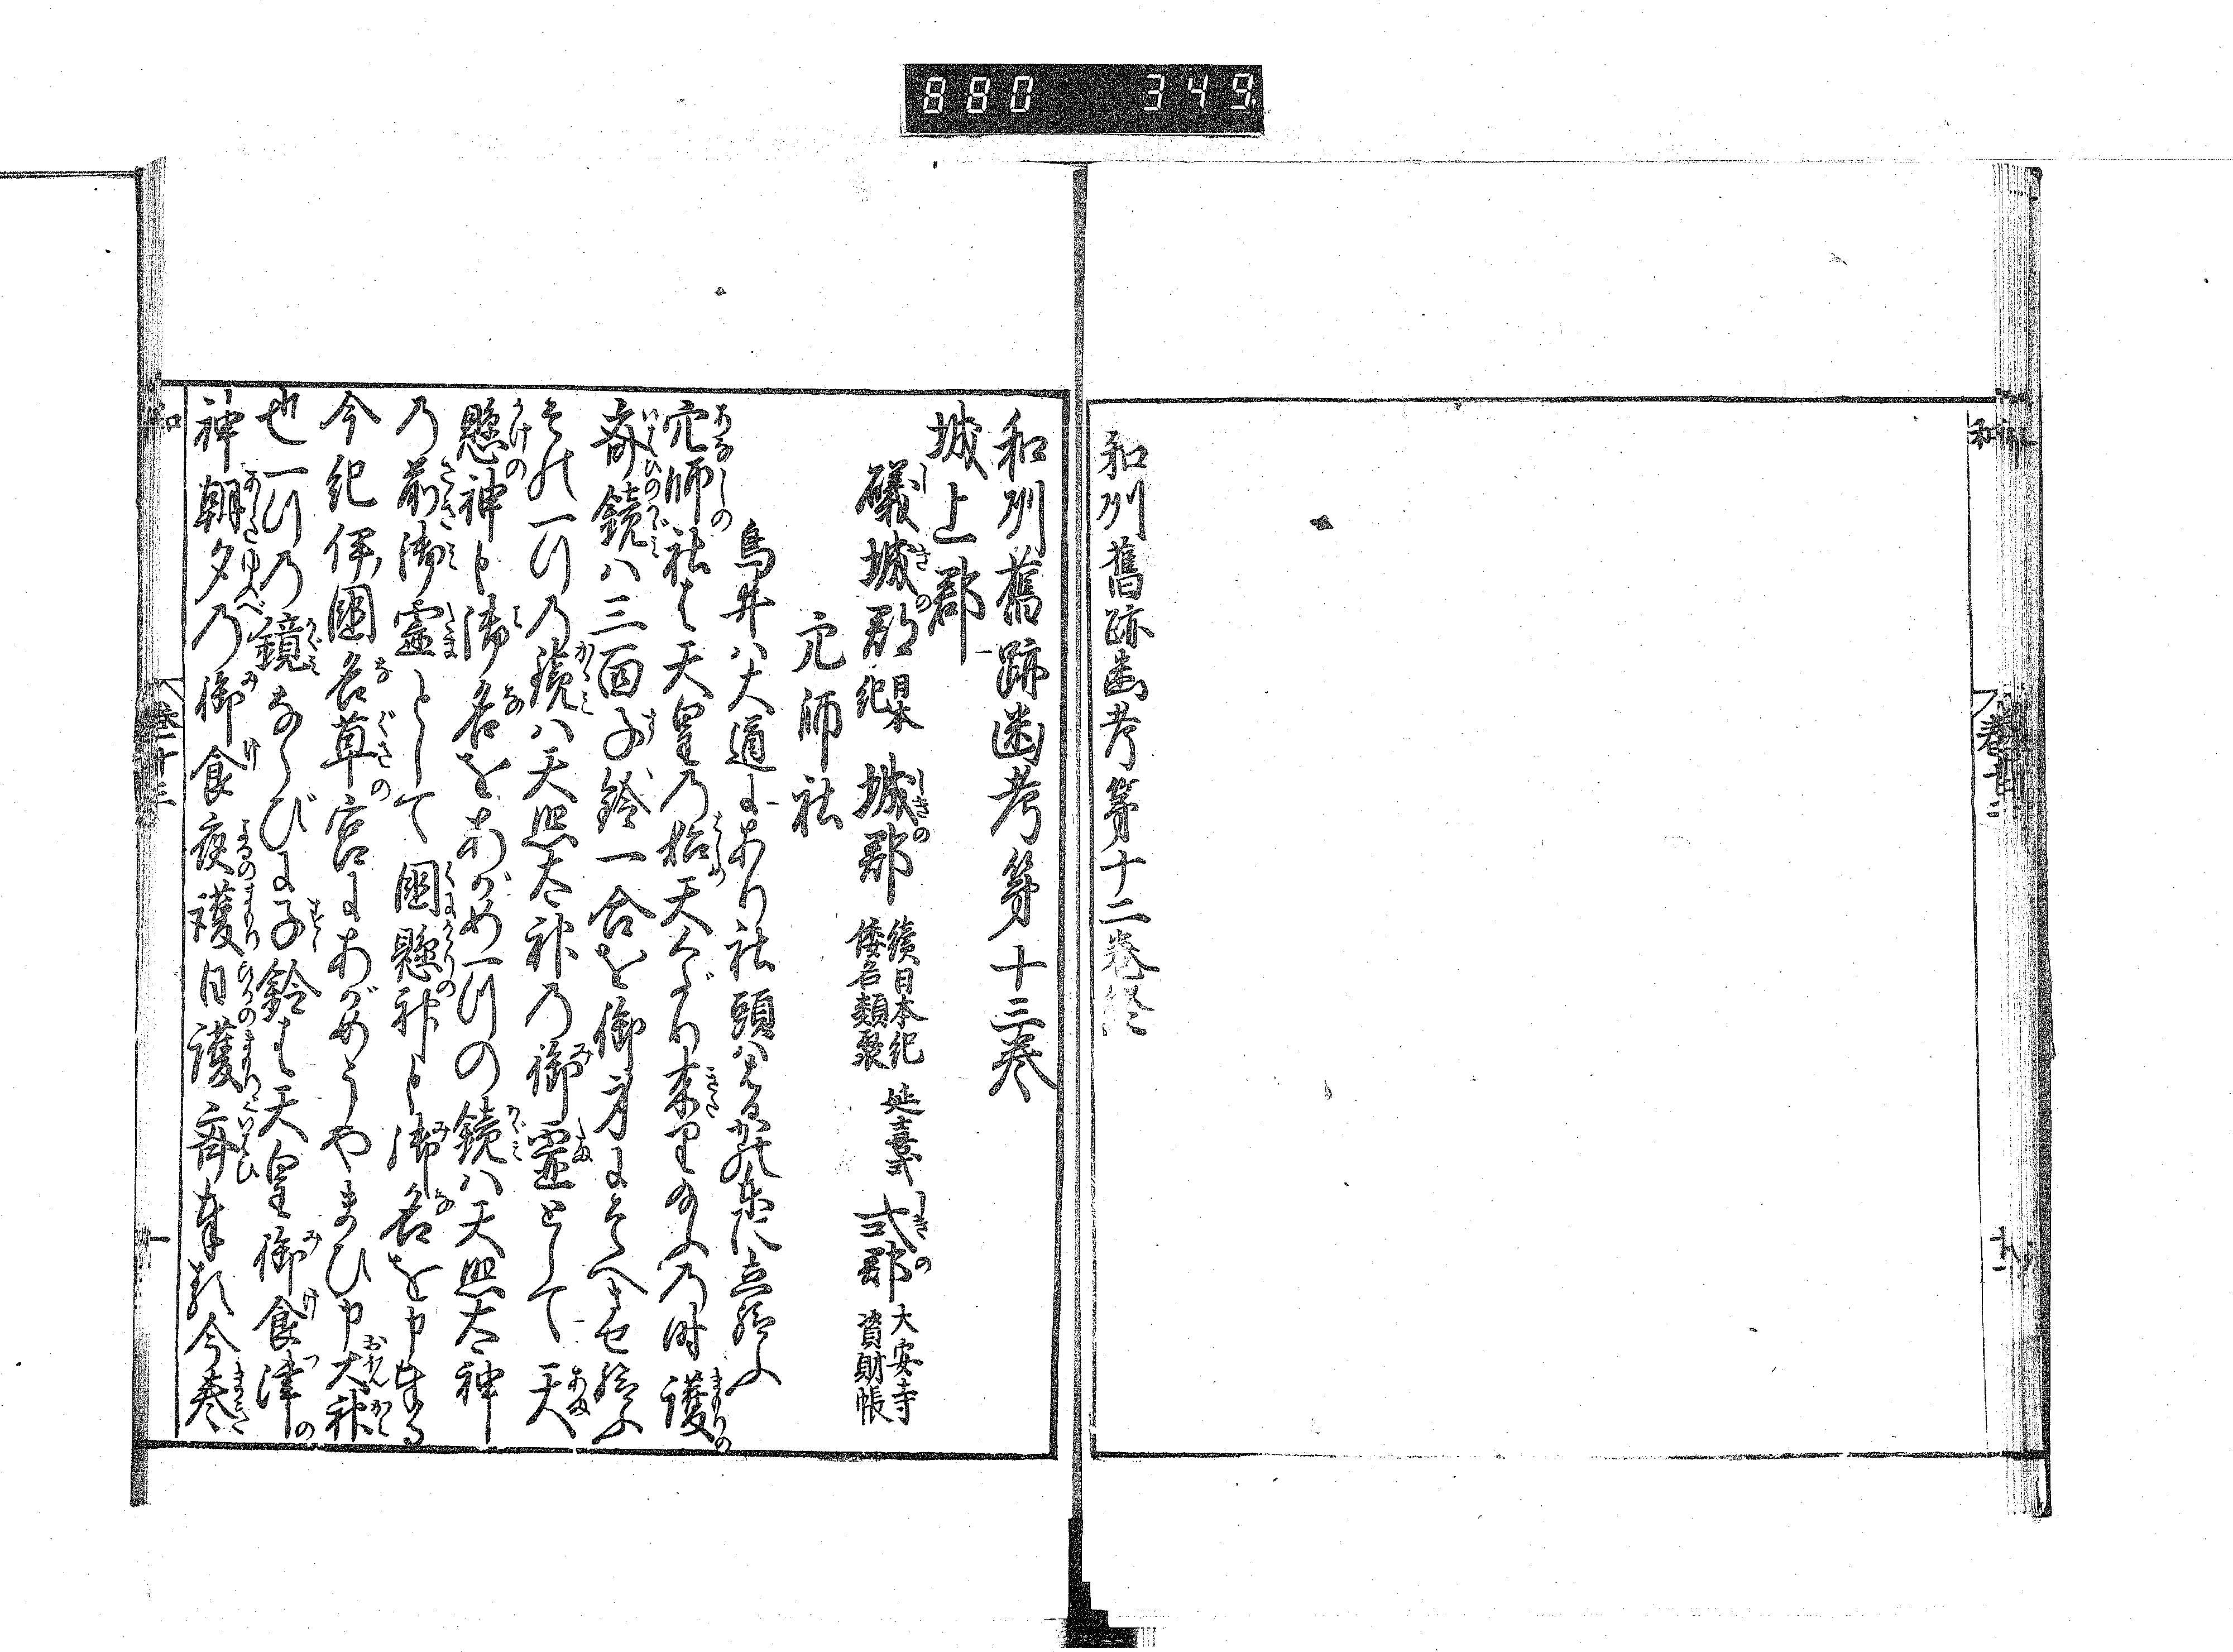 880 349
和州舊跡幽考第十二巻終
和州舊跡幽考第十三巻
城上郡
礒城郡 日本紀 城郡 續日本紀 倭名類聚 延喜式 弍郡 大安寺資財帳
穴師社
鳥井ハ大道にあり社頭ハ東に立給ふ
穴師社は天皇の始天くだり来り給ふの時護
斎鏡ハ三面子鈴一合を御身にそへ給ふ
その一つの鏡ハ天照太神の御霊として天
懸神と御名をあがめ一つの鏡ハ天照太神
の前御霊として國懸神と御名を申奉る
今紀伊國名草宮にあがめうやまひ申大神
也一つの鏡ならびに子鈴は天皇御食津
神朝夕の御食夜護日護斎奉る今巻
和 巻十三 一